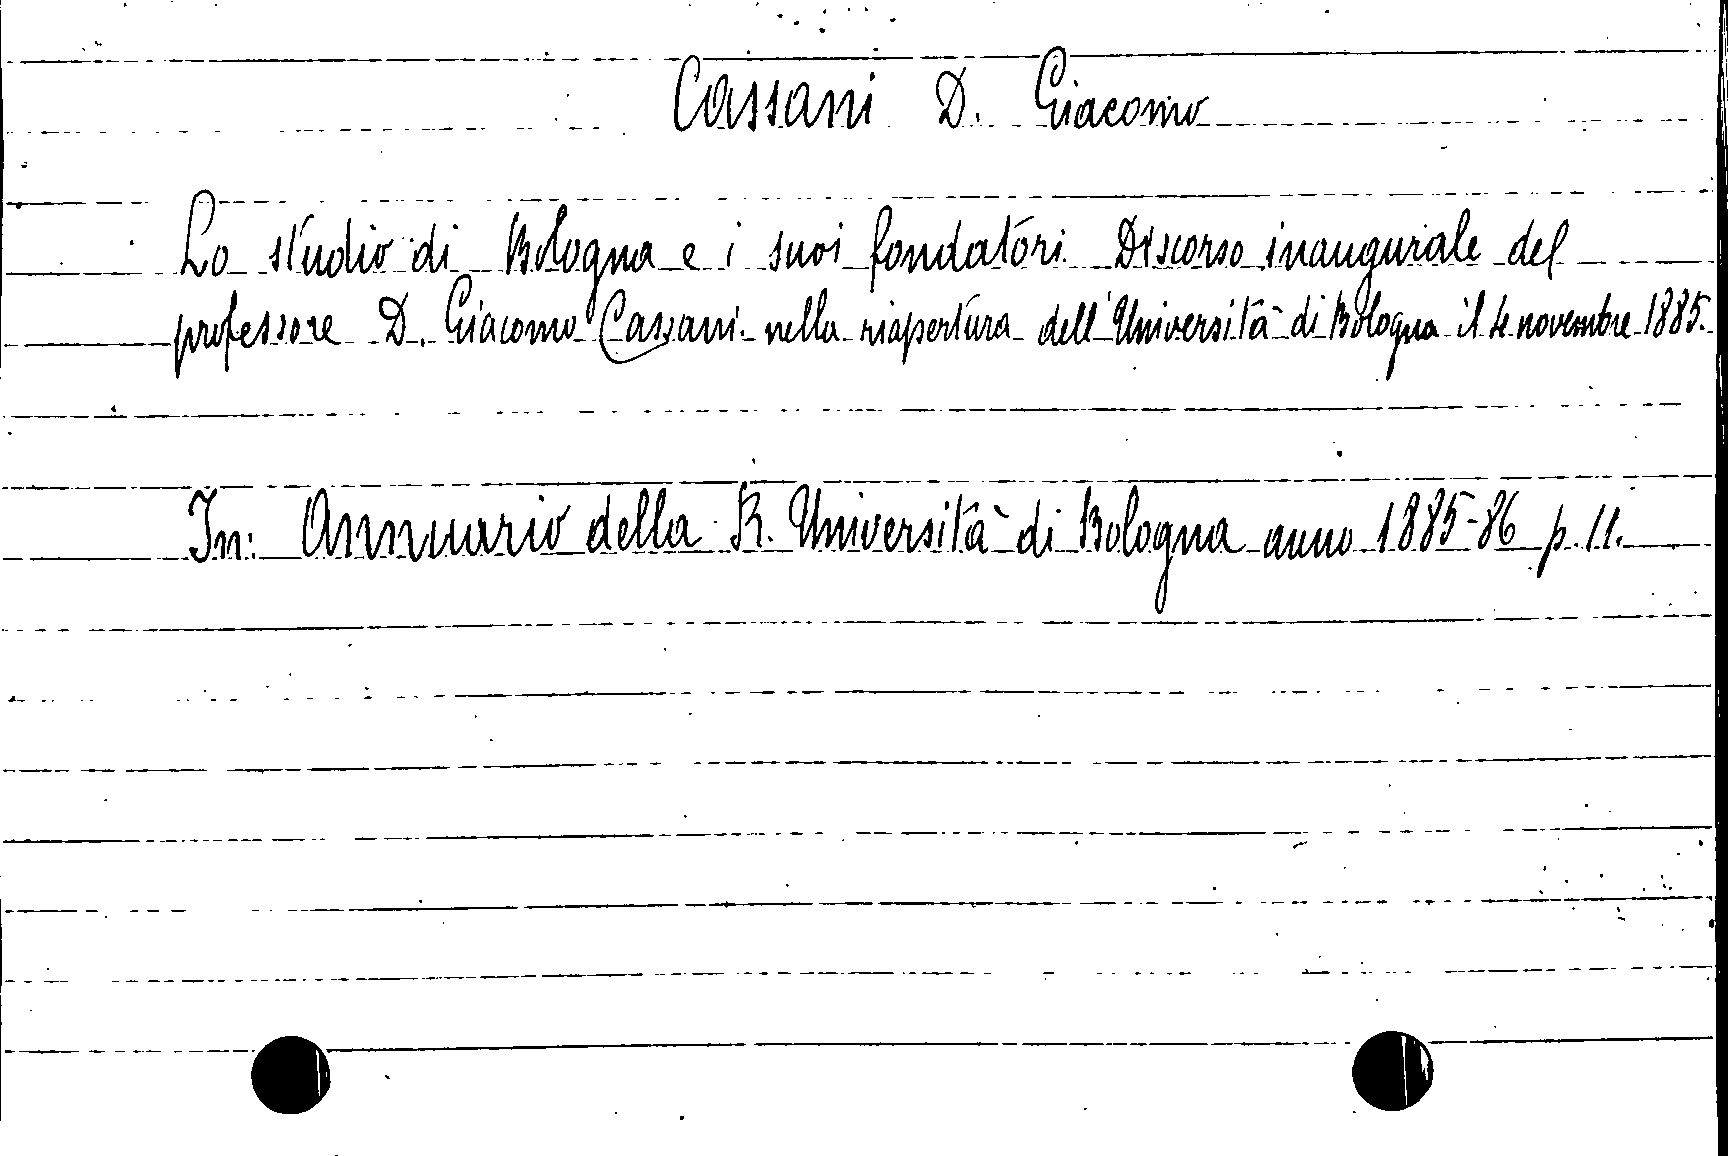 Cassani D. Giacomo
Lo studio di Bologna e i suoi fondatori. Discorso inaugurale del
professore D. Giacomo Cassani nella riapertura dell'Università di Bologna il 4 novembre 1885.
In: Annuario della R. Università di Bologna anno 1885-86 p. 11.